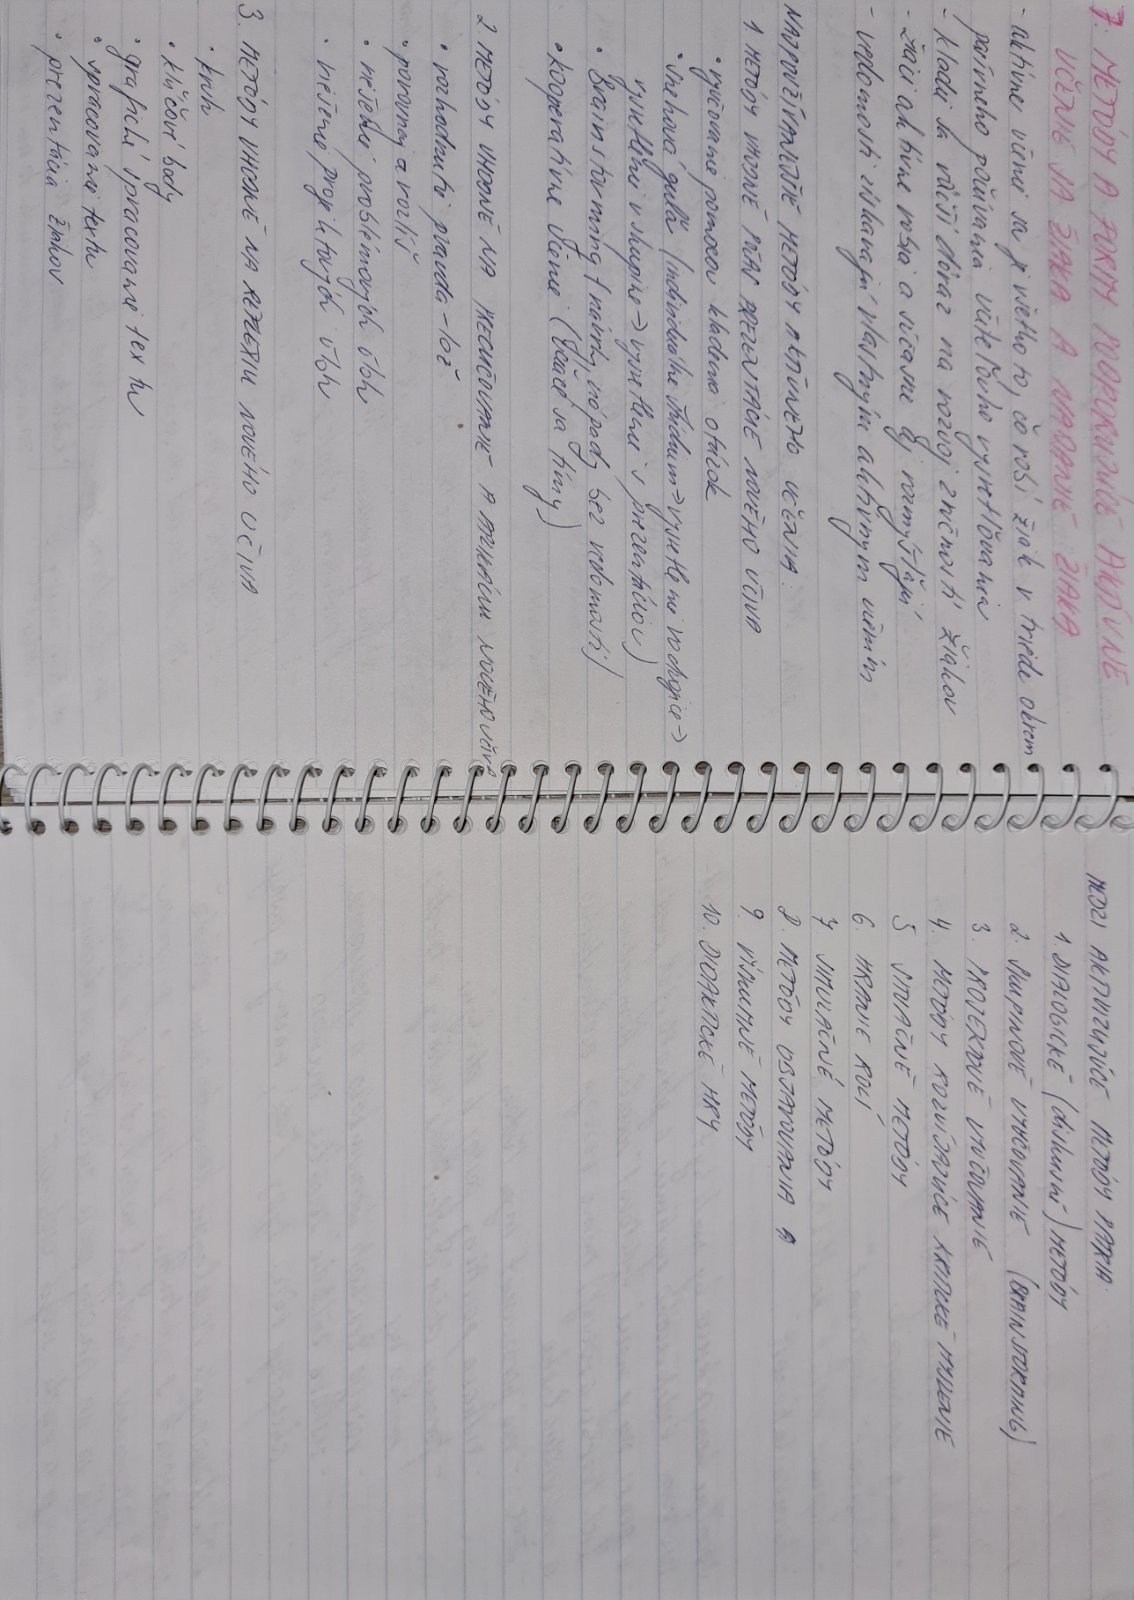 7. METÓDY A FORMY PODPORUJÚCE AKTÍVNE
UČENIE SA ŽIAKA A NADANÉ ŽIAKA
- aktívne učenie sa je všetko to, čo robí žiak v triede okrem
pasívneho počúvania učiteľovho vysvetľovania
- kladie sa väčší dôraz na rozvoj zručností žiakov
- žiaci aktívne robia a súčasne aj rozmýšľajú
- vedomosti získavajú vlastným aktívnym učením
NAJPOUŽÍVANEJŠIE METÓDY AKTÍVNEHO UČENIA:
1 METÓDY VHODNÉ PRE PREZENTÁCIE NOVÉHO UČIVA
• vyučovanie pomocou kladenia otázok
• snehová guľa (individuálne štúdium → vysvetlenie vo dvojici →
vysvetlenie v skupine → vysvetlenie s prezentáciou)
• Brainstorming (námety, nápady bez vedomostí)
• kooperatívne učenie (žiaci sa tímy)
2 METÓDY VHODNÉ NA PRECVIČOVANIE A APLIKÁCIU NOVÉHO UČIVA
• rozhodnutie pravda - lož
• porovnaj a rozlíš
• riešenie problémových úloh
• riešenie projektových úloh
3. METÓDY VHODNÉ NA REFLEXIU NOVÉHO UČIVA
• kruh
• kľúčové body
• grafické spracovanie textu
• spracovanie textu
• prezentácia žiakov
MEDZI AKTIVIZUJÚCE METÓDY PATRIA:
1. DIALOGICKÉ (diskusné) METÓDY
2. SKUPINOVÉ VYUČOVANIE (BRAINSTORMING)
3. PROJEKTOVÉ VYUČOVANIE
4. METÓDY ROZVÍJAJÚCE KRITICKÉ MYSLENIE
5 SITUAČNÉ METÓDY
6. HRANIE ROLÍ
7 SIMULAČNÉ METÓDY
8. METÓDY OBJAVOVANIA A
9. VÝSKUMNÉ METÓDY
10. DIDAKTICKÉ HRY